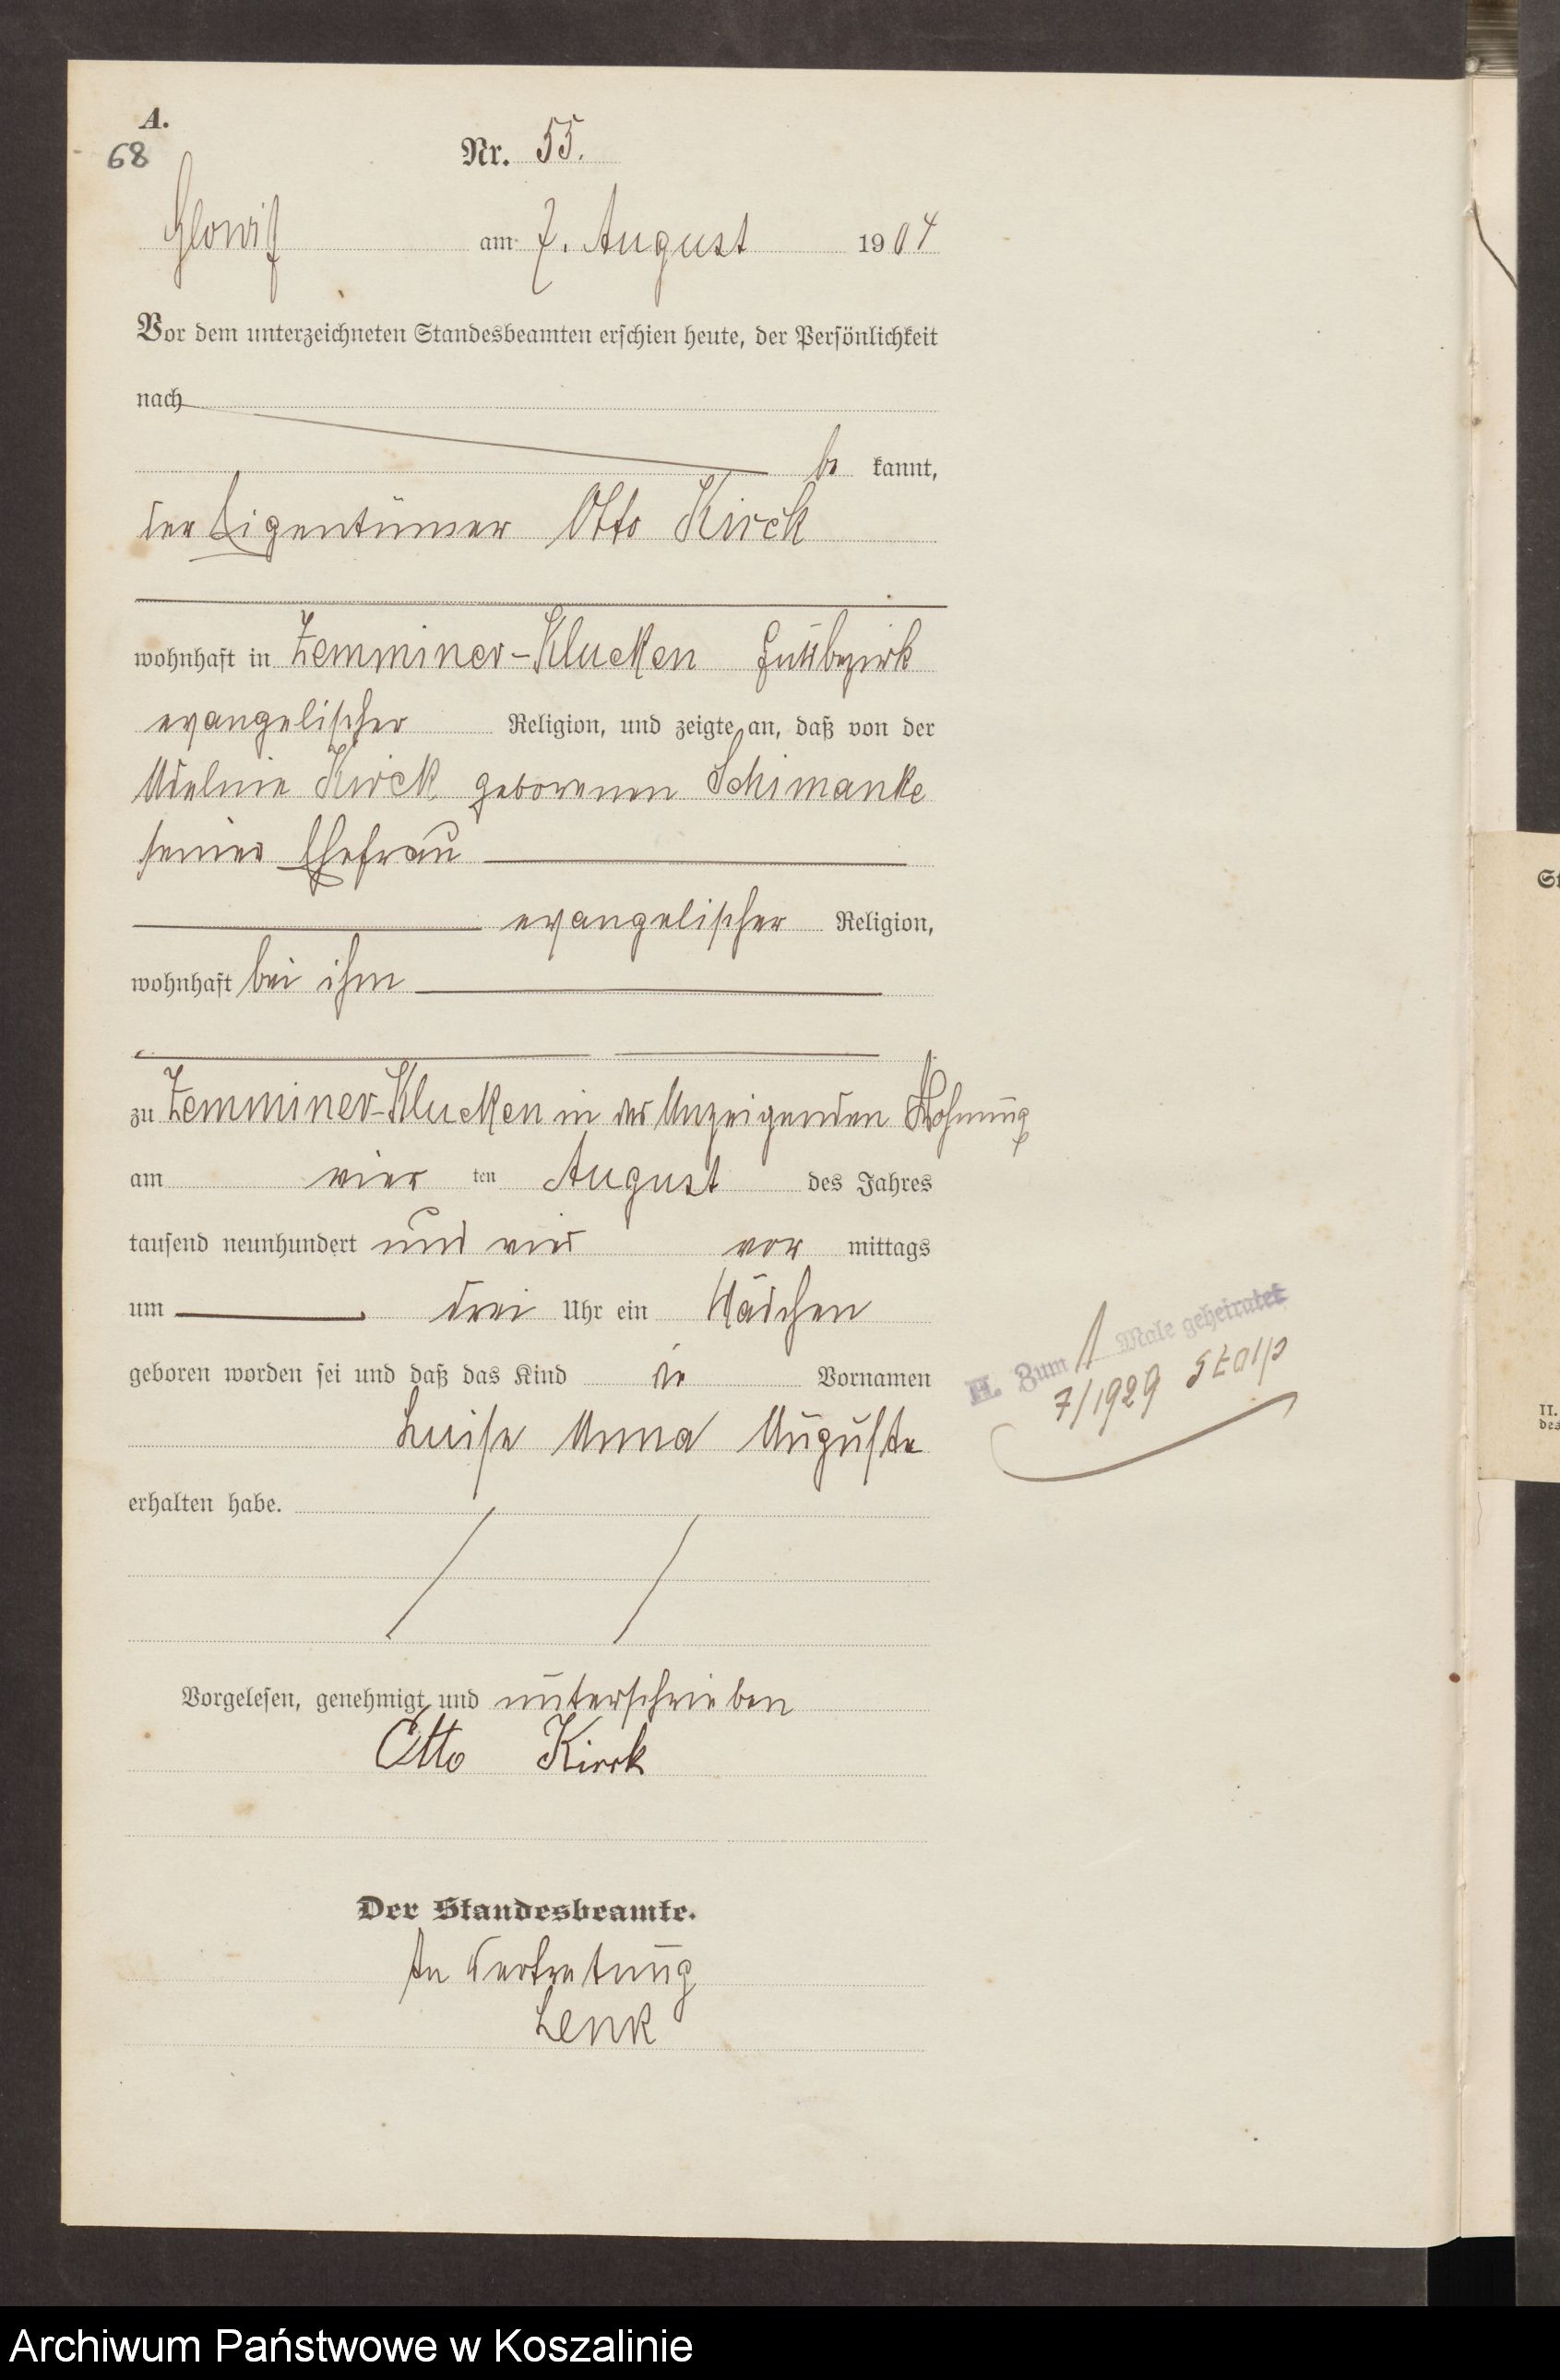 A.
68
Nr. 55.
Glowitz am 7. August 1904
Vor dem unterzeichneten Standesbeamten erschien heute, der Persönlichkeit
nach
be kannt,
der Eigentümer Otto Kirck
wohnhaft in Zemminer-Klucken Gutsbezirk
evangelischer Religion, und zeigte an, daß von der
Kirck geborenen Schimanke
seiner Ehefrau
evangelischer Religion,
wohnhaft bei ihm
zu Zemminer-Klucken in des Anzeigenden Wohnung
am vier ten August des Jahres
tausend neunhundert und vier vor mittags
um drei Uhr ein Mädchen
geboren worden sei und daß das Kind die Vornamen
Luise Anna Auguste
erhalten habe.
H. Zum 1 Male geheiratet
7/1929 Stolp
Vorgelesen, genehmigt und unterschrieben
Otto Kirck
Der Standesbeamte.
In Vertretung
Lenk
II.
des
Archiwum Państwowe w Koszalinie